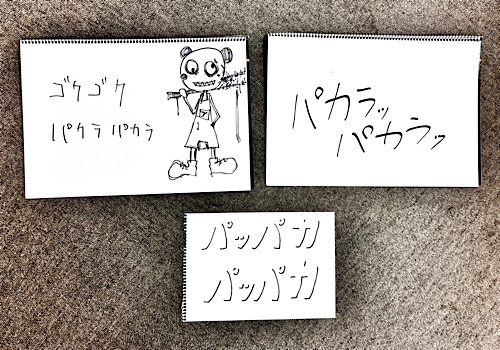 ゴクゴク
パクラパカラ
パカラッ
パカラッ
パッパカ
パッパカ